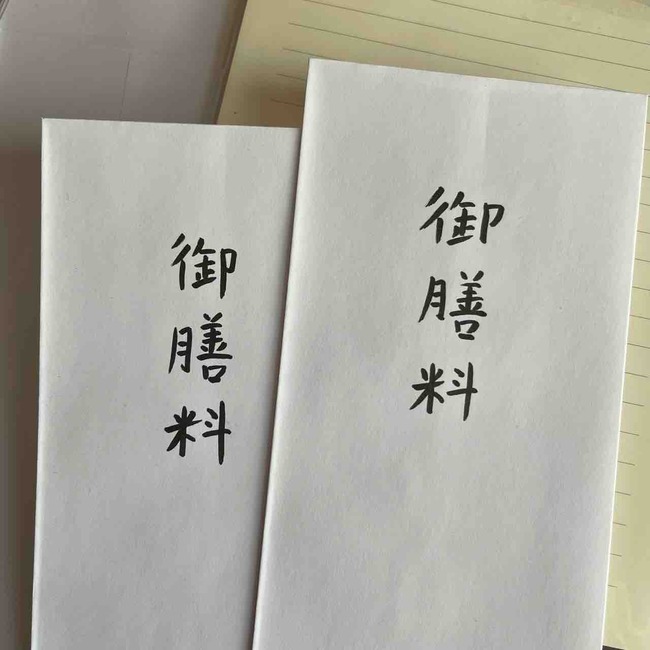 御膳料
御膳料